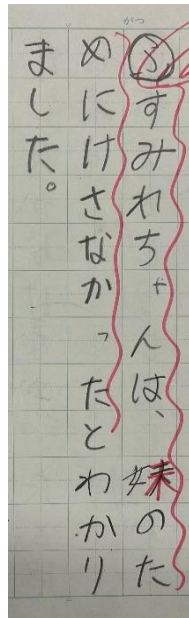 がつ
すみれちゃんは、妹のた
めにけさなかったとわかり
ました。